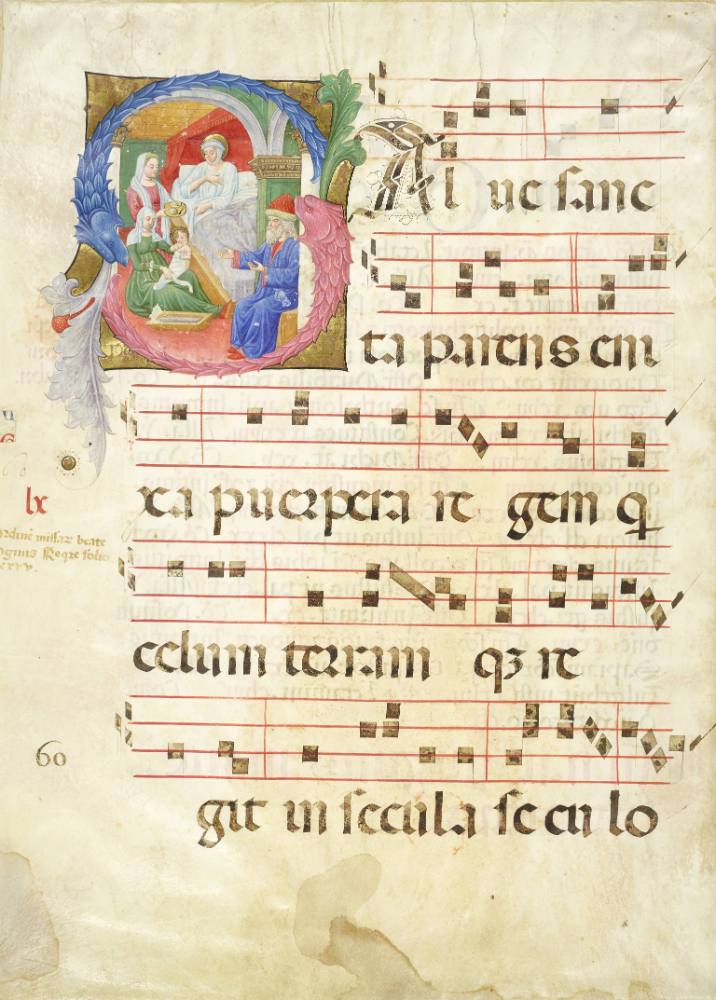 SAl ue sanc
ta parens eni
xa puerpera re gem q
celum terram qꝫ re
git in secula se cu lo
lx
missaꝝ beate
Reqre folio
60